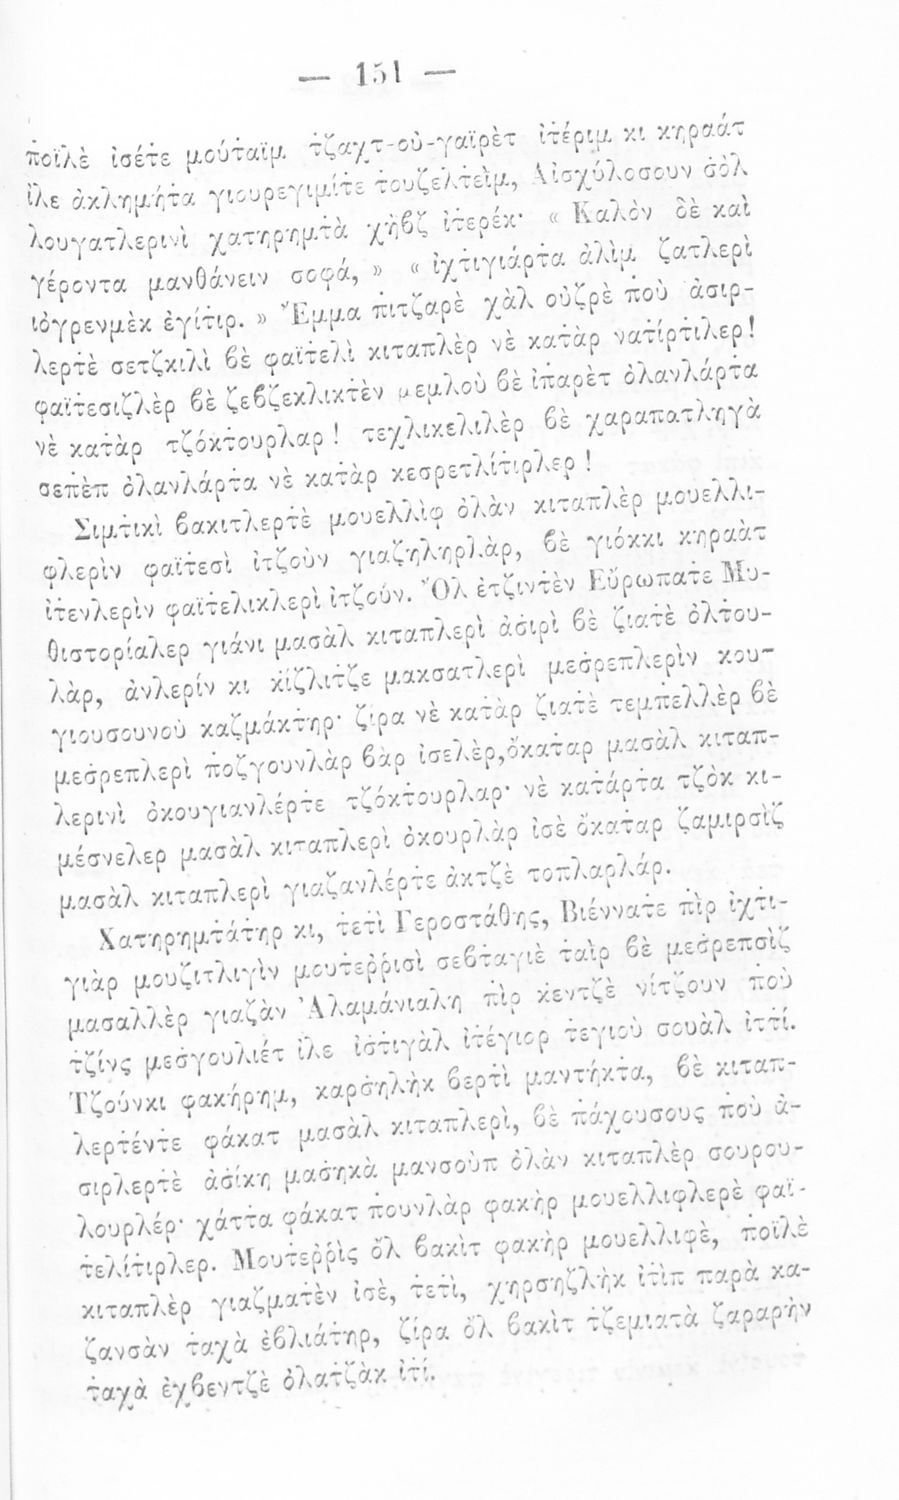 — 151 —
ποϊλὲ ἰσέτε μούταϊμ τζαχτ-οὐ-γαϊρὲτ ἰτέριμ κι κηραάτ
ἰλε ἀκλημήτα γιουρεγιμίτε τουζελτεὶμ, Αἰσχύλοσουν σὸλ
λουγατλερινὶ χατηρημτὰ χὴβζ ἰτερέκ· « Καλὸν δὲ καὶ
γέροντα μανθάνειν σοφά, » « ἰχτιγιάρτα ἀλὶμ ζατλερὶ
ιὀγρενμὲκ ἐγίτιρ. » Ἔμμα πιτζαρὲ χὰλ οὐζρὲ ποὺ ἀσιρ-
λερτὲ σετζκιλὶ βὲ φαϊτελὶ κιταπλὲρ νὲ κατὰρ νατίρτιλερ!
φαϊτεσιζλὲρ βὲ ζεβζεκλικτὲν μεμλοὺ βὲ ἰπαρὲτ ὀλανλάρτα
νὲ κατὰρ τζόκτουρλαρ! τεχλικελιλὲρ βὲ χαραπατληγὰ
σεπὲπ ὀλανλάρτα νὲ κατὰρ κεσρετλίτιρλερ!
Σιμτικὶ βακιτλερτὲ μουελλὶφ ὀλὰν κιταπλὲρ μουελλι-
φλερὶν φαϊτεσὶ ἰτζοὺν γιαζηληρλὰρ, βὲ γιόκκι κηραὰτ
ἰτενλερὶν φαϊτελικλερὶ ἰτζούν. Ὀλ ἐτζιντὲν Εὔρωπατε Μυ-
θιστορίαλερ γιάνι μασὰλ κιταπλερὶ ἀσιρὶ βὲ ζιατὲ ὀλτου-
λὰρ, ἀνλερίν κι κίζλιτζε μακσατλερὶ μεσρεπλερὶν κου-
γιουσουνοὺ καζμάκτηρ· ζίρα νὲ κατὰρ ζιατὲ τεμπελλὲρ βὲ
μεσρεπλερὶ ποζγουνλὰρ βὰρ ἰσελὲρ, ὄκαταρ μασὰλ κιταπ-
λερινὶ ὀκουγιανλέρτε τζόκτουρλαρ· νὲ κατάρτα τζὸκ κι-
μέσνελερ μασὰλ κιταπλερὶ ὀκουρλὰρ ἰσὲ ὄκαταρ ζαμιρσὶζ
μασὰλ κιταπλερὶ γιαζανλέρτε ἀκτζὲ τοπλαρλάρ.
Χατηρημτάτηρ κι, τετὶ Γεροστάθης, Βιέννατε πὶρ ἰχτι-
γιὰρ μουζιτλιγὶν μουτεῤῥισὶ σεβταγιὲ ταὶρ βὲ μεσρεπσὶζ
μασαλλὲρ γιαζὰν Ἀλαμάνιαλη πὶρ κεντζὲ νίτζουν ποὺ
τζίνς μεσγουλιέτ ἰλε ἰστιγὰλ ἰτέγιορ τεγιοὺ σουὰλ ἰττί.
Τζούνκι φακήρημ, καρσηλὴκ βερτὶ μαντήκτα, βὲ κιταπ-
λερτέντε φάκατ μασὰλ κιταπλερὶ, βὲ πάχουσους ποὺ ἀ-
σιρλερτὲ ἀσίκη μασηκὰ μανσοὺπ ὀλὰν κιταπλὲρ σουρου-
λουρλέρ· χάττα φάκατ πουνλὰρ φακὴρ μουελλιφλερὲ φαϊ-
τελίτιρλερ. Μουτεῤῥὶς ὂλ βακὶτ φακὴρ μουελλιφὲ, ποϊλὲ
κιταπλὲρ γιαζματὲν ἰσὲ, τετὶ, χηρσηζλὴκ ἰτὶπ παρὰ κα-
ζανσὰν ταχὰ ἐβλιάτηρ, ζίρα ὂλ βακὶτ τζεμιατὰ ζαραρὴν
ταχὰ ἐχβεντζὲ ὀλατζὰκ ἰτί.